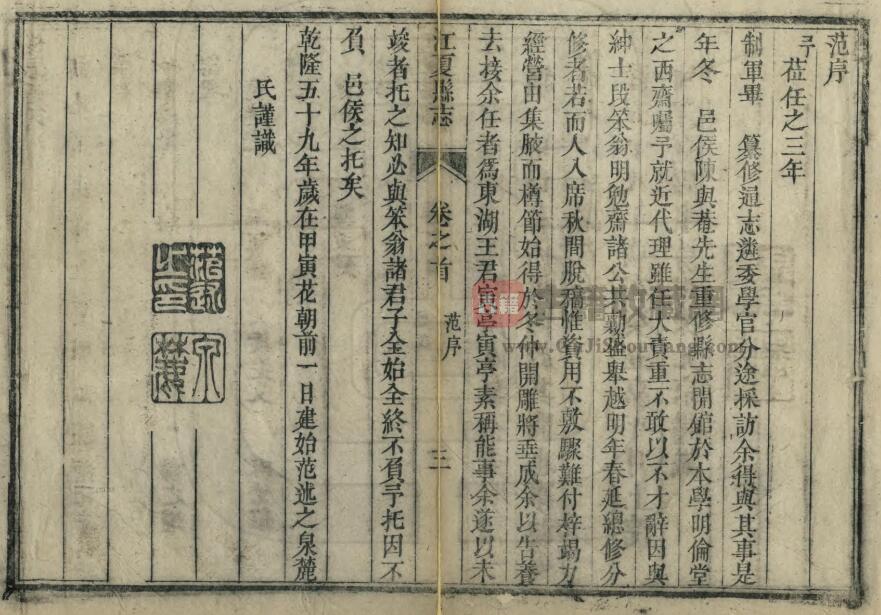 范序
予莅任之三年
制軍畢 纂修通志遴委學官分途採訪余得與其事是
年冬 邑侯陳與菴先生重修縣志開館於本學明倫堂
之西齋囑予就近代理雖任大責重不敢以不才辭因與
紳士段笨翁明勉齋諸公共勷盛舉越明年春延總修分
修者若而人入席秋間脫稿惟資用不敷驟難付梓竭力
經營由集腋而樽節始得於冬仲開雕將垂成余以告養
去接余任者爲東湖王君寅亭寅亭素稱能事余遂以未
竣者托之知必與笨翁諸君子全始全終不負予托因不
負 邑侯之托矣
乾隆五十九年歲在甲寅花朝前一日建始范述之泉麓
氏謹識
江夏縣志 卷之首 范序 三
范述之印
泉麓
古籍
www.GuJiShouCang.com